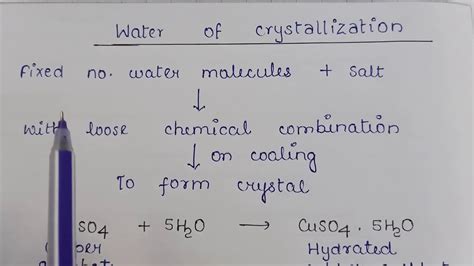 Water of crystallization
Fixed no. water molecules + salt
↓
with loose chemical combination
↓ on cooling
To form crystal
SO4 + 5H2O → CuSO4 . 5H2O
Hydrated